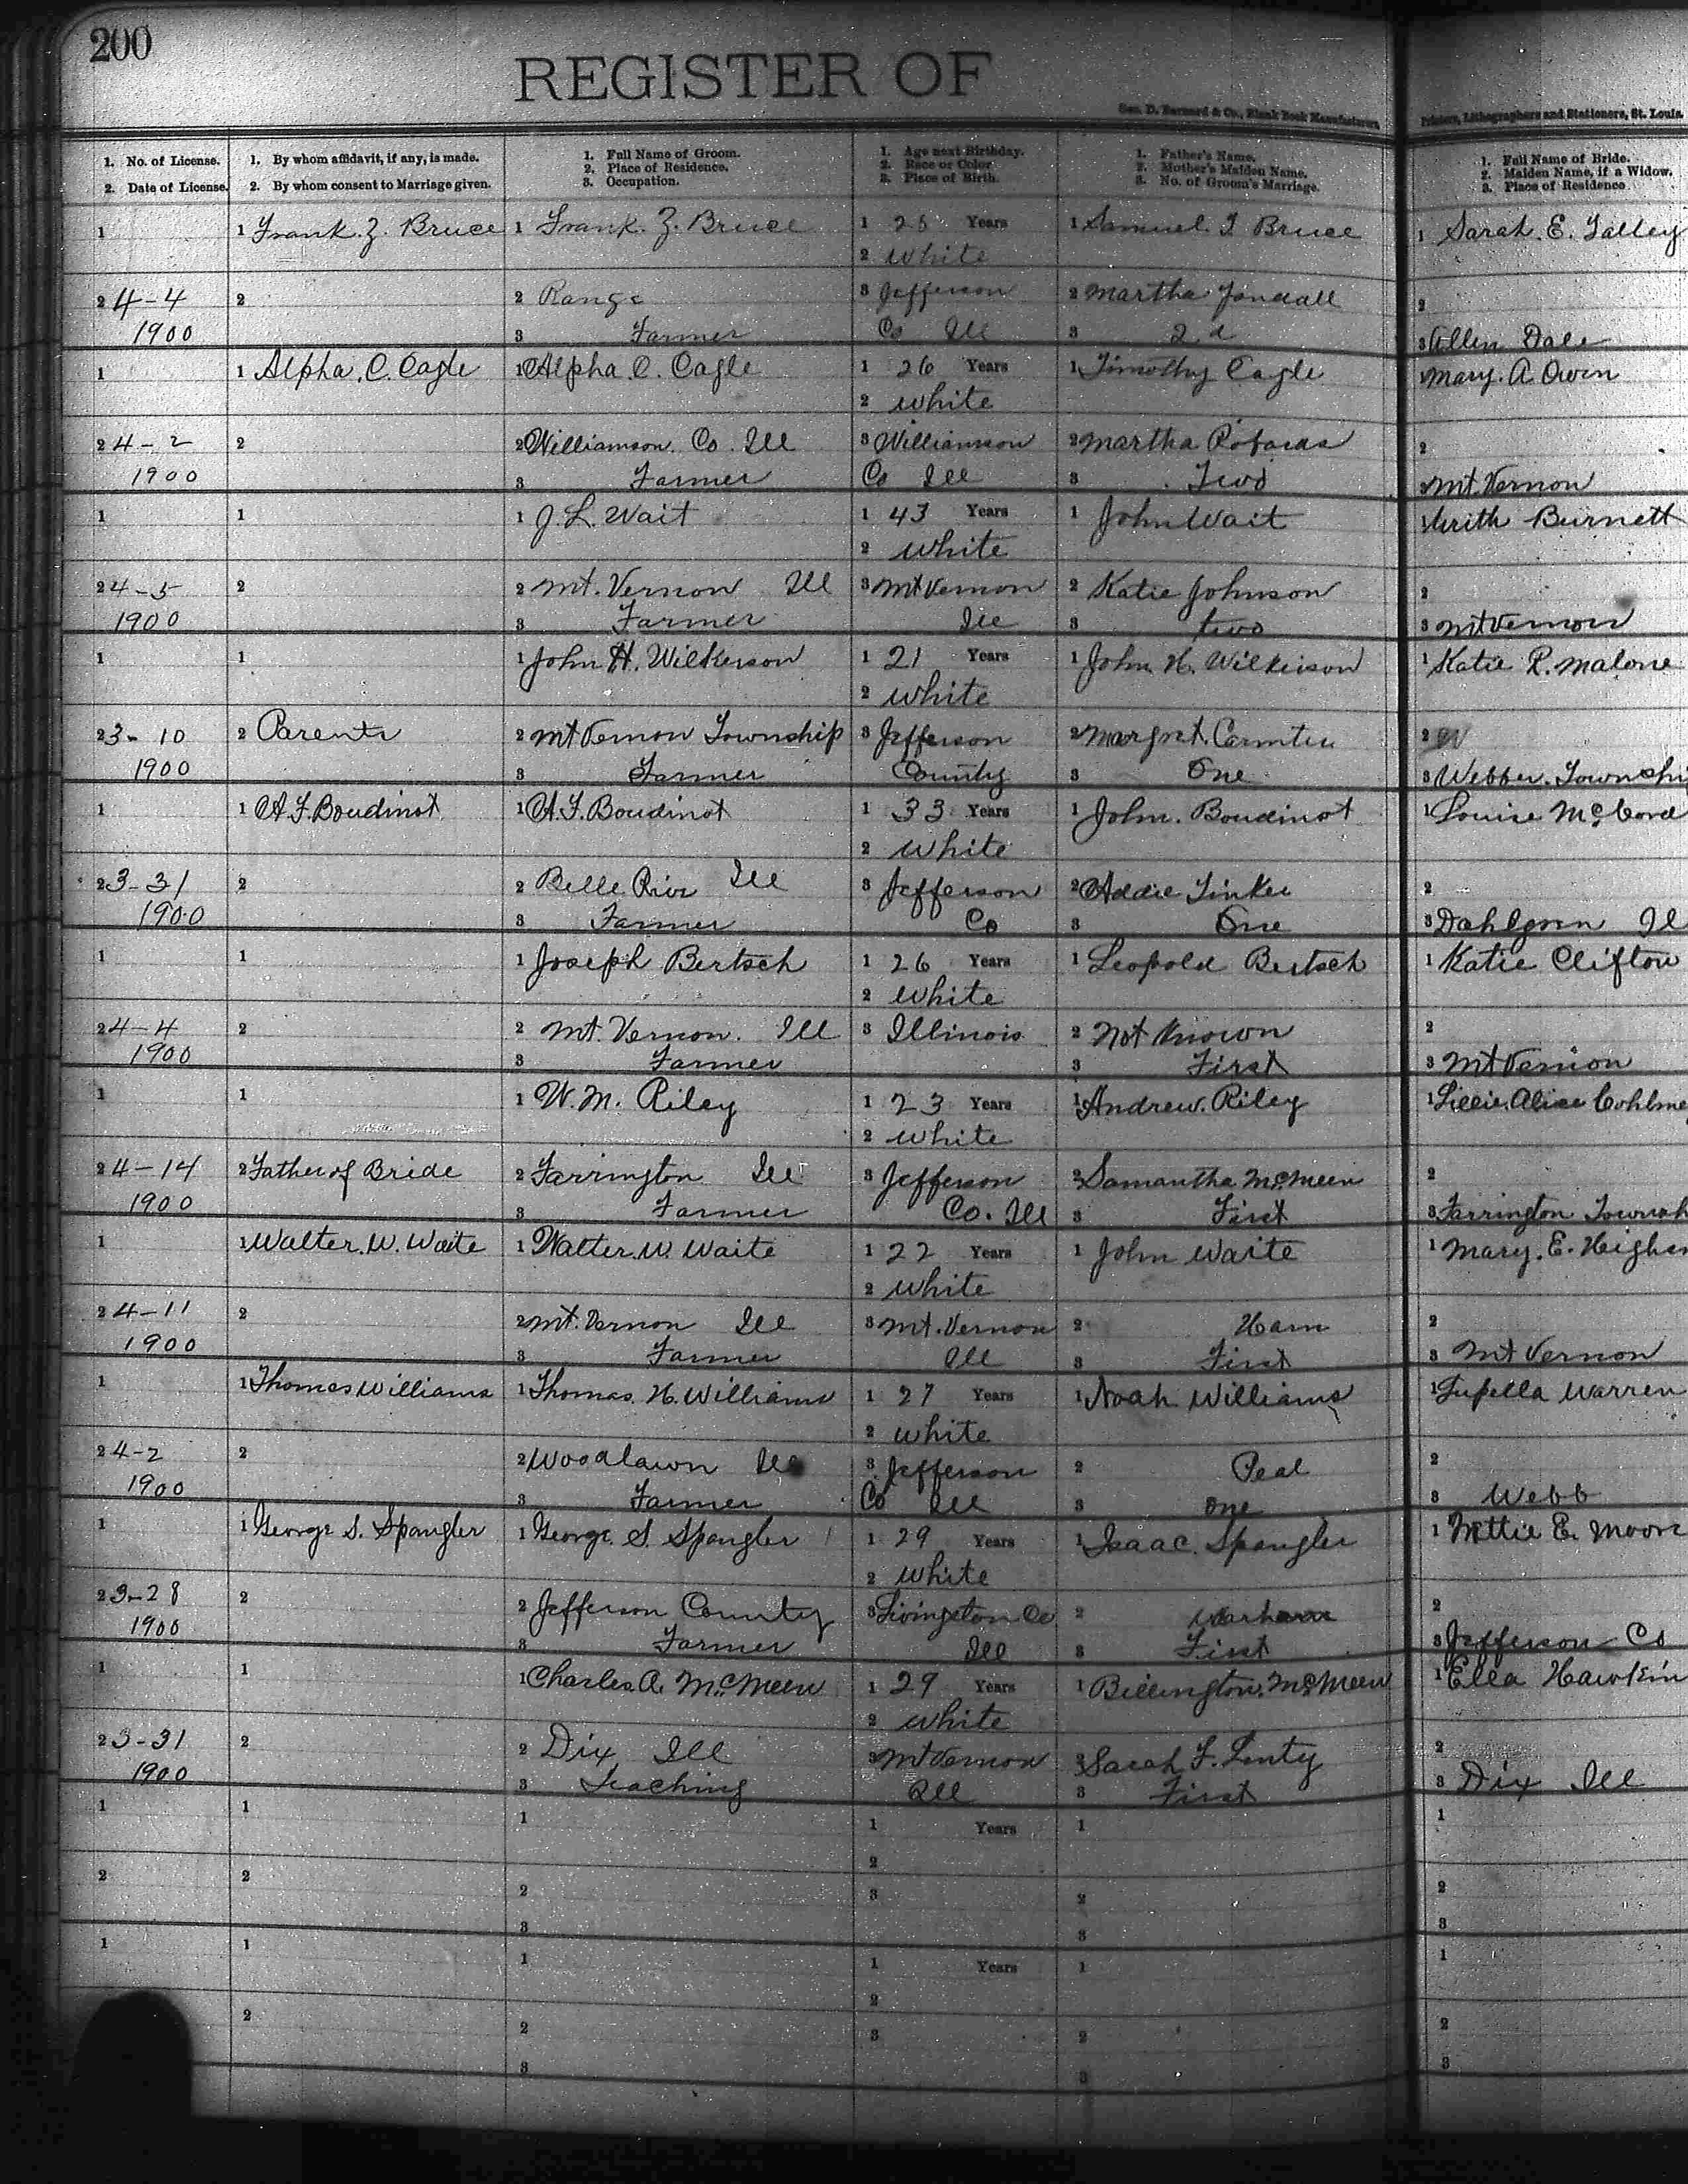 200
REGISTER OF
Geo. D. Barnard & Co., Blank Book Manufacturers,
Printers, Lithographers and Stationers, St. Louis.
1. No. of License.
2. Date of License.
1. By whom affidavit, if any, is made.
2. By whom consent to Marriage given.
1. Full Name of Groom.
2. Place of Residence.
3. Occupation.
1. Age next Birthday.
2. Race or Color.
3. Place of Birth.
1. Father's Name.
2. Mother's Maiden Name.
3. No. of Groom's Marriage.
1. Full Name of Bride.
2. Maiden Name, if a Widow.
3. Place of Residence
1 1 Frank. Z. Bruce 1 Frank. Z. Bruce 1 25 Years 1 Samuel T Bruce 1 Sarah. E. Talley
2 white
2 4-4 2 2 Range 3 Jefferson 2 Martha 2
1900 3 Farmer Co Ill 3 2.d 3 Allen Dale
1 1 Alpha. C. Cagle 1 Alpha. C. Cagle 1 26 Years 1 Timothy Cagle 1 Mary. A Owen
2 white
2 4-2 2 2 Williamson. Co. Ill 3 Williamson 2 Martha 2
1900 3 Farmer Co Ill 3 Two 3 Mt. Vernon
1 1 1 J. L. Wait 1 43 Years 1 John Wait 1 Burnett
2 white
2 4-5 2 2 Mt. Vernon Ill 3 Mt Vernon 2 Katie Johnson 2
1900 3 Farmer Ill 3 two 3 Mt Vernon
1 1 1 John H. Wilkerson 1 21 Years 1 John H. Wilkerson 1 Katie R. Malone
2 white
2 3-10 2 Parents 2 Mt Vernon Township 3 Jefferson 2 Margret. 2
1900 3 Farmer County 3 One 3 Webber. Townshi
1 1 A. F. Boudinot 1 A. F. Boudinot 1 33 Years 1 John. Boudinot 1 Louise McCord
2 white
2 3-31 2 2 Belle River Ill 3 Jefferson 2 Addie Tinker 2
1900 3 Farmer Co 3 One 3 Dahlgren Il
1 1 1 Joseph Bertsch 1 26 Years 1 Leopold Bertsch 1 Katie Clifton
2 white
2 4-4 2 2 Mt. Vernon. Ill 3 Illinois 2 Not Known 2
1900 3 Farmer 3 First 3 Mt Vernon
1 1 1 W. M. Riley 1 23 Years 1 Andrew. Riley 1 Lillie. Alice Cohlme
2 white
2 4-14 2 Father of Bride 2 Farrington Ill 3 Jefferson 2 Samantha McMeen 2
1900 3 Farmer Co. Ill 3 First 3 Farrington Townsh
1 1 Walter. W. Waite 1 Walter. W. Waite 1 22 Years 1 John Waite 1 Mary. E. Highs
2 white
2 4-11 2 2 Mt. Vernon Ill 3 Mt. Vernon 2 Ham 2
1900 3 Farmer Ill 3 First 3 Mt Vernon
1 1 Thomas Williams 1 Thomas. H. Williams 1 27 Years 1 Noah Williams 1 Warren
2 white
2 4-2 2 2 Woodlawn Ill 3 Jefferson 2 Peal 2
1900 3 Farmer Co Ill 3 One 3 Webb
1 1 George S. Spangler 1 George. S. Spangler 1 29 Years 1 Isaac. Spangler 1 Nettie E. Moore
2 white
2 3-28 2 2 Jefferson County 3 Livingston Co 2 2
1900 3 Farmer Ill 3 First 3 Jefferson Co
1 1 1 Charles. A. McMeen 1 29 Years 1 Billington. McMeen 1 Ella Hawkin
2 white
2 3-31 2 2 Dix Ill 3 Mt Vernon 2 Sarah F. 2
1900 3 Teaching Ill 3 First 3 Dix Ill
1 1 1 1 Years 1 1
2
2 2 2 3 2 2
3 3 3
1 1 1 1 Years 1 1
2
2 2 3 2 2
3 3 3